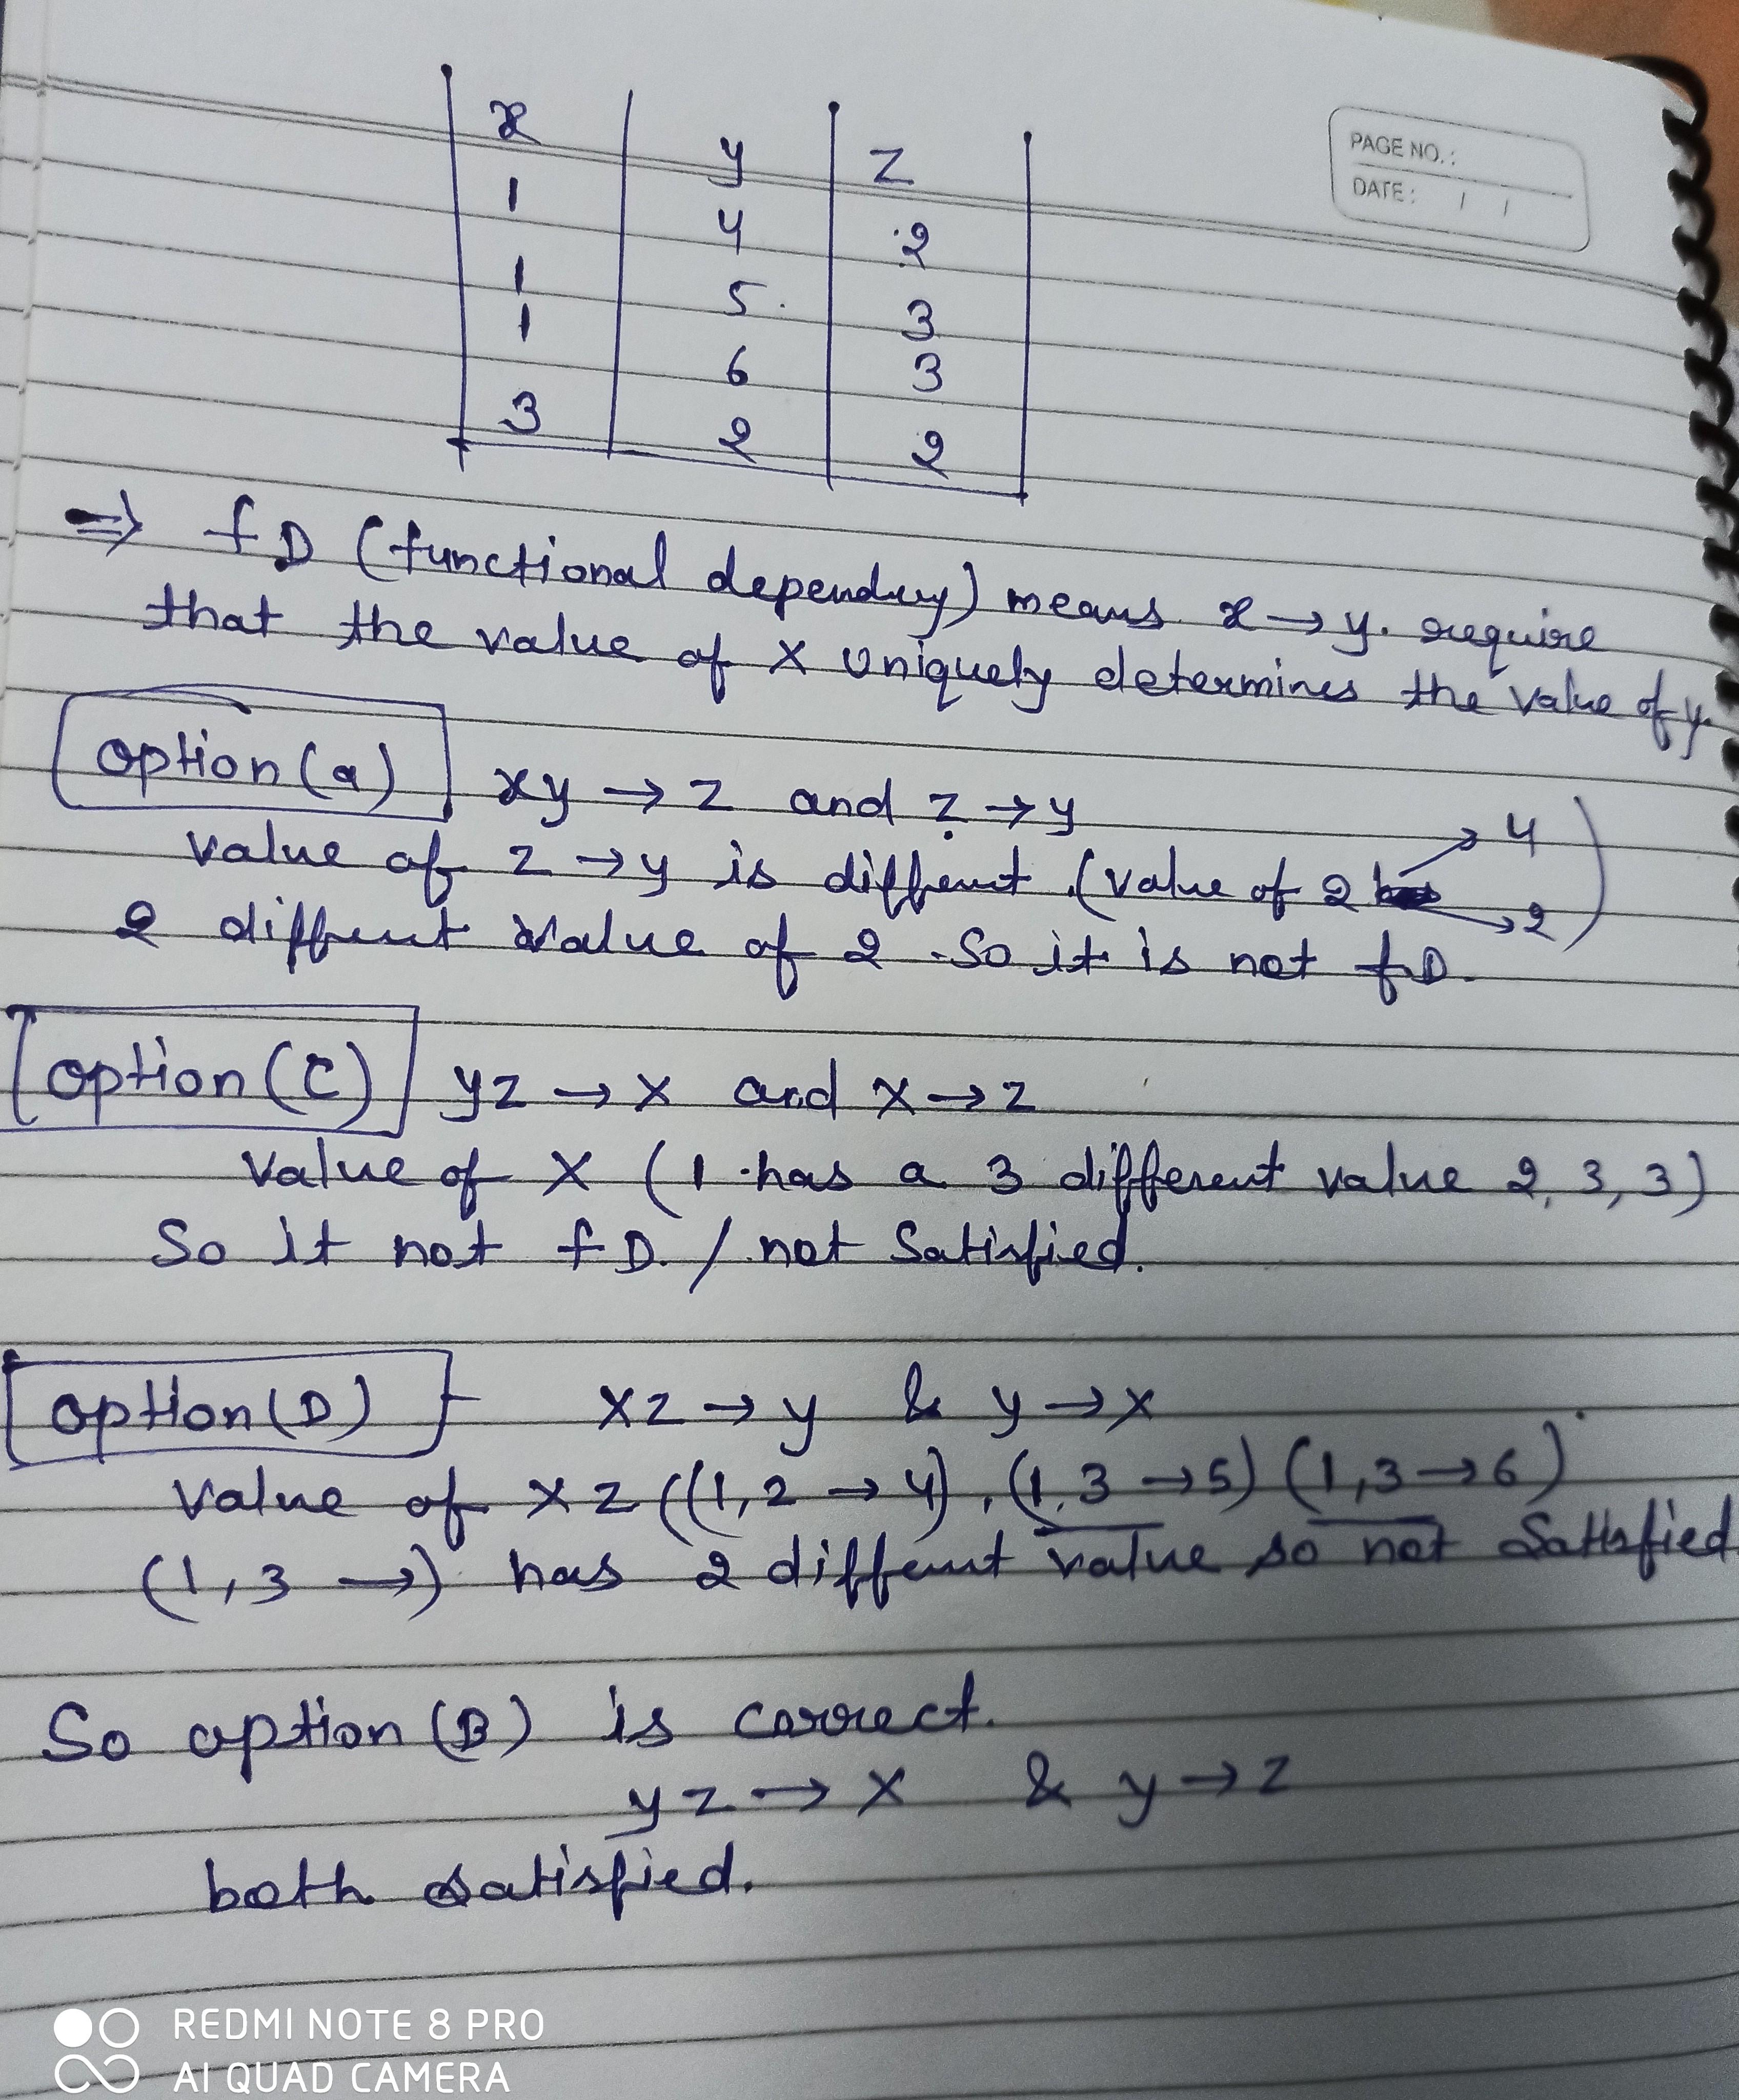 x y z
1 4 2
1 5 3
1 6 3
3 2 2
PAGE NO.:
DATE: / /
⇒ fD (functional dependecy) means x → y. require
that the value of x uniquely determines the value of y.
option(a) xy → z and z → y
value of z → y is different. (value of 2 → 4 → 2)
2 different value of 2. So it is not fD.
option(C) yz → x and x → z
Value of x (1 has a 3 different value 2, 3, 3)
So it not fD. / not Satisfied.
option(D) - xz → y & y → x
value of xz ((1,2 → 4), (1,3 → 5) (1,3 → 6)
(1,3 →) has 2 different value so not Satisfied
So option(B) is correct.
yz → x & y → z
both satisfied.
REDMI NOTE 8 PRO
AI QUAD CAMERA